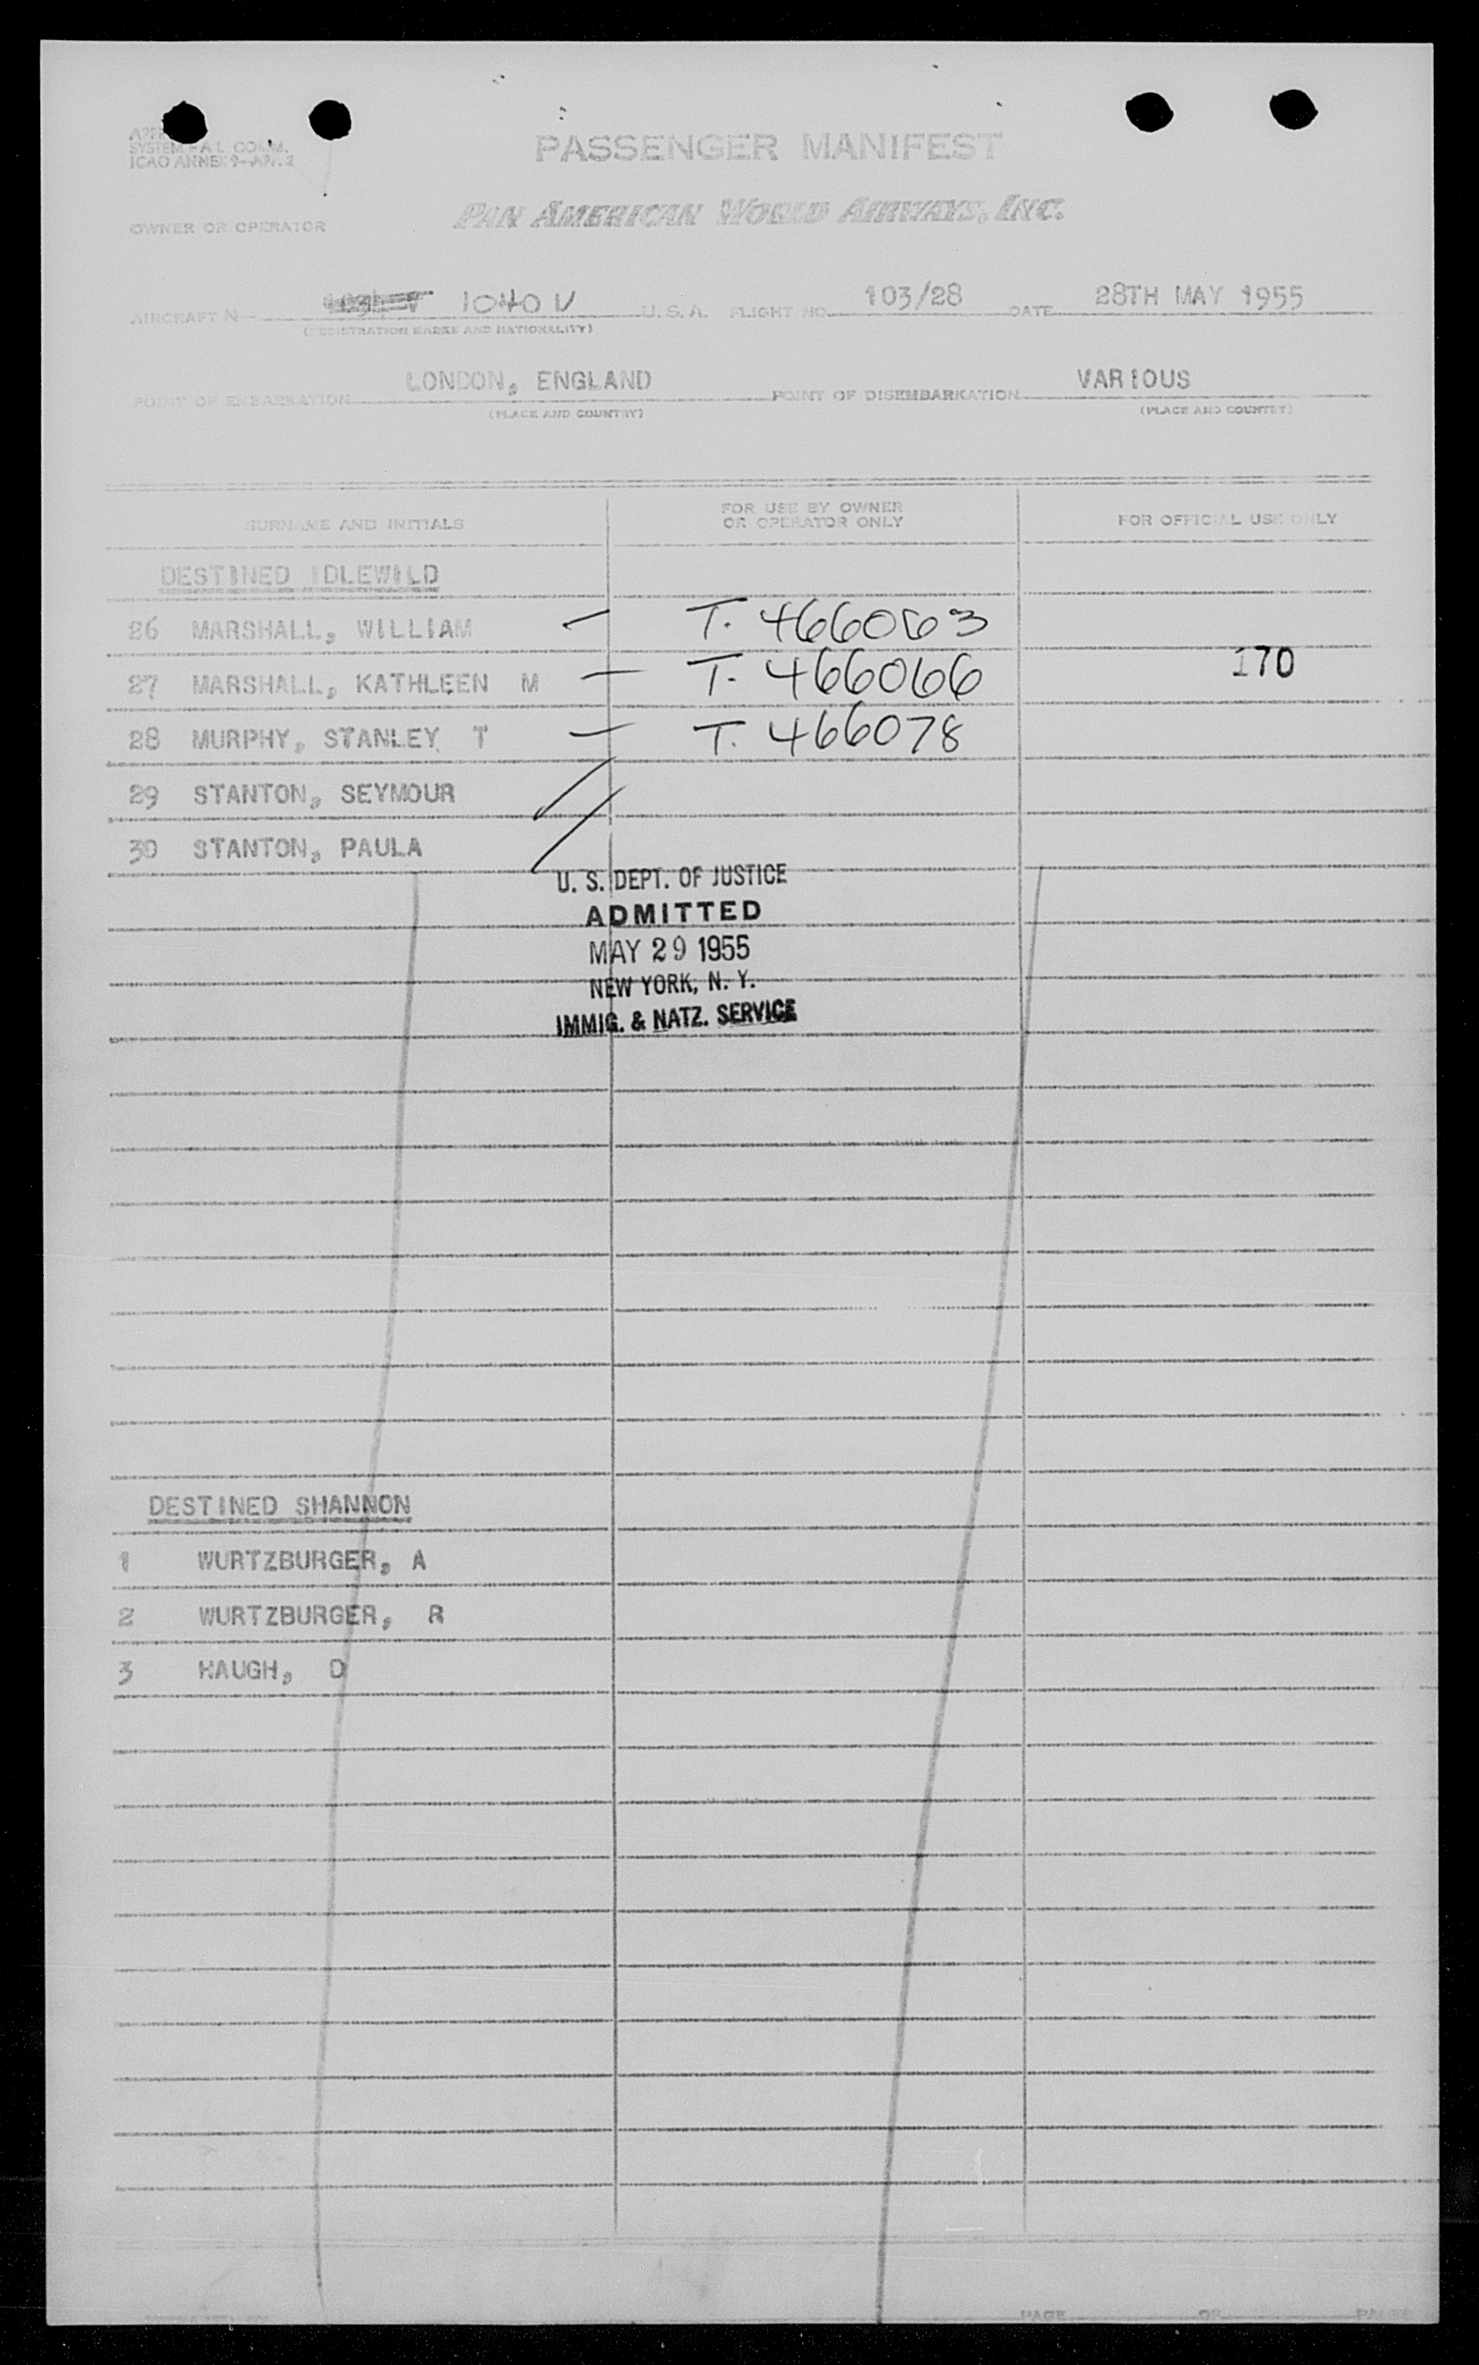 SYSTEM F A L COMM.
ICAO ANNEX 9-APP. 2
PASSENGER MANIFEST
OWNER OR OPERATOR PAN AMERICAN WORLD AIRWAYS, INC.
AIRCRAFT N 1040 V U. S. A. FLIGHT NO. 103/28 DATE 28TH MAY 1955
(REGISTRATION MARKS AND NATIONALITY)
POINT OF EMBARKATION LONDON, ENGLAND POINT OF DISEMBARKATION VARIOUS
(PLACE AND COUNTRY) (PLACE AND COUNTRY)
SURNAME AND INITIALS FOR USE BY OWNER OR OPERATOR ONLY FOR OFFICIAL USE ONLY
DESTINED IDLEWILD
26 MARSHALL, WILLIAM — T. 466063
27 MARSHALL, KATHLEEN M — T. 466066 170
28 MURPHY, STANLEY T — T. 466078
29 STANTON, SEYMOUR
30 STANTON, PAULA
U. S. DEPT. OF JUSTICE
ADMITTED
MAY 29 1955
NEW YORK, N. Y.
IMMIG. & NATZ. SERVICE
DESTINED SHANNON
1 WURTZBURGER, A
2 WURTZBURGER, R
3 HAUGH, D
PAGE OF PAGES